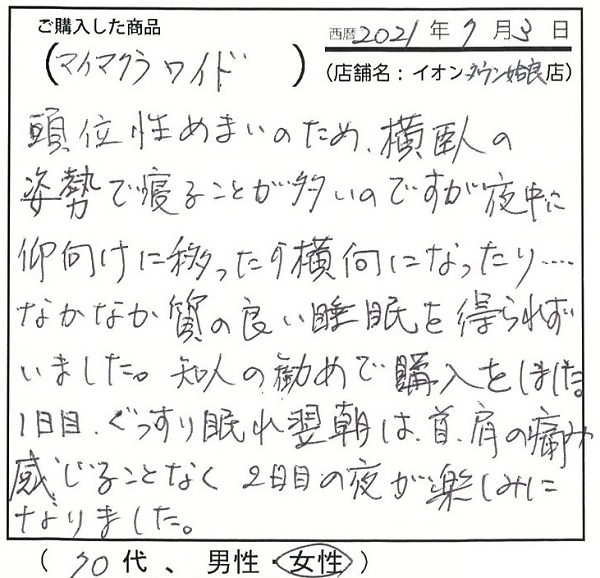 ご購入した商品
西暦 2021 年 7 月 3 日
(マイマクラワイド)
(店舗名：イオンタウン姶良店)
頭位性めまいのため、横臥の
姿勢で寝ることが多いのですが夜中に
仰向けに移ったり横向になったり……
なかなか質の良い睡眠を得られず
いました。知人の勧めで購入をしました。
1日目、ぐっすり眠れ翌朝は、首、肩の痛み
感じることなく 2日目の夜が楽しみに
なりました。
(70代、男性・女性)